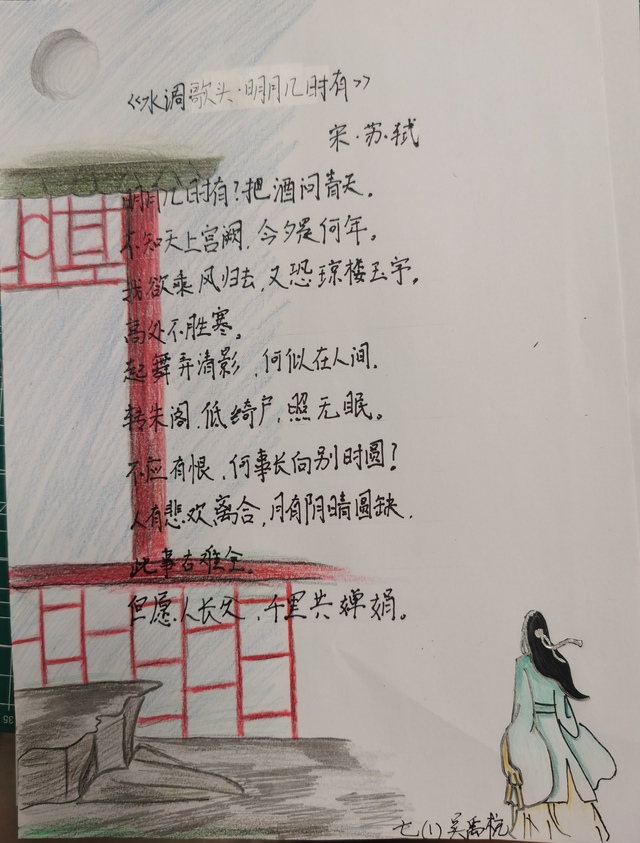 《水调歌头·明月几时有》
宋·苏·轼
明月几时有？把酒问青天。
不知天上宫阙，今夕是何年。
我欲乘风归去，又恐琼楼玉宇。
高处不胜寒。
起舞弄清影，何似在人间。
转朱阁，低绮户，照无眠。
不应有恨，何事长向别时圆？
人有悲欢离合，月有阴晴圆缺，
此事古难全。
但愿人长久，千里共婵娟。
七(1)吴禹杭
35